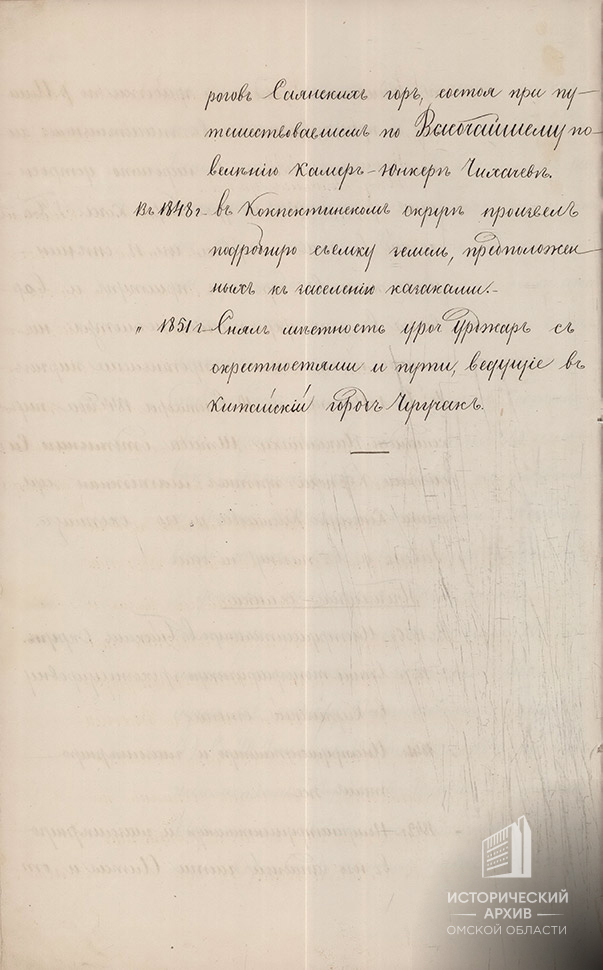 роговъ Саянскихъ горъ, состоя при пу-
тешествовавшемъ по Высочайшему по-
велѣнію Камеръ-Юнкерѣ Чихачевѣ.
Въ 1848 г. въ Кокпектинскомъ округѣ произвелъ
подробную съемку земель, предположен-
ныхъ къ заселенію казаками.-
" 1851 г. Снялъ мѣстность уроч. Урджаръ съ
окрестностями и пути, ведущіе въ
Китайскій городъ Чугучакъ.
ИСТОРИЧЕСКИЙ
АРХИВ
ОМСКОЙ ОБЛАСТИ